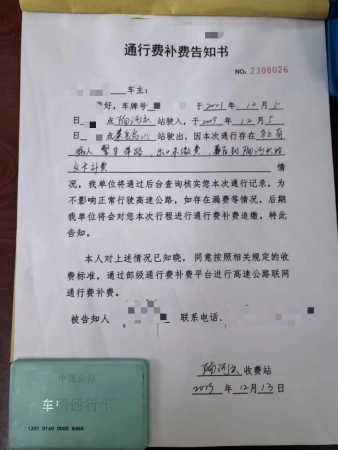 通行费补费告知书
NO: 2308026
车主:
好, 车牌号 于2023年12月5
日 点 站驶入, 于2023年12月5
日 点 站驶出, 因本次通行存在 车上有
病人 警车带路, 出口未缴费,
交卡补费 情
况, 我单位将通过后台查询核实您本次通行记录, 为
不影响正常行驶高速公路, 如存在漏费等情况, 后期
我单位将会对您本次行程进行通行费补费追缴, 特此
告知。
本人对上述情况已知晓, 同意按照相关规定的收
费标准, 通过部级通行费补费平台进行高速公路联网
通行费补费。
被告知人 联系电话
收费站
2023年12月13日
中国公路
车 通行卡
1201 0140 0005 8455